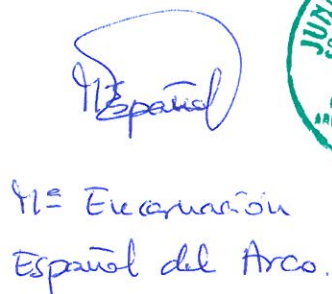 Mª Español
JUN
Mª Encarnación
Español del Arco.